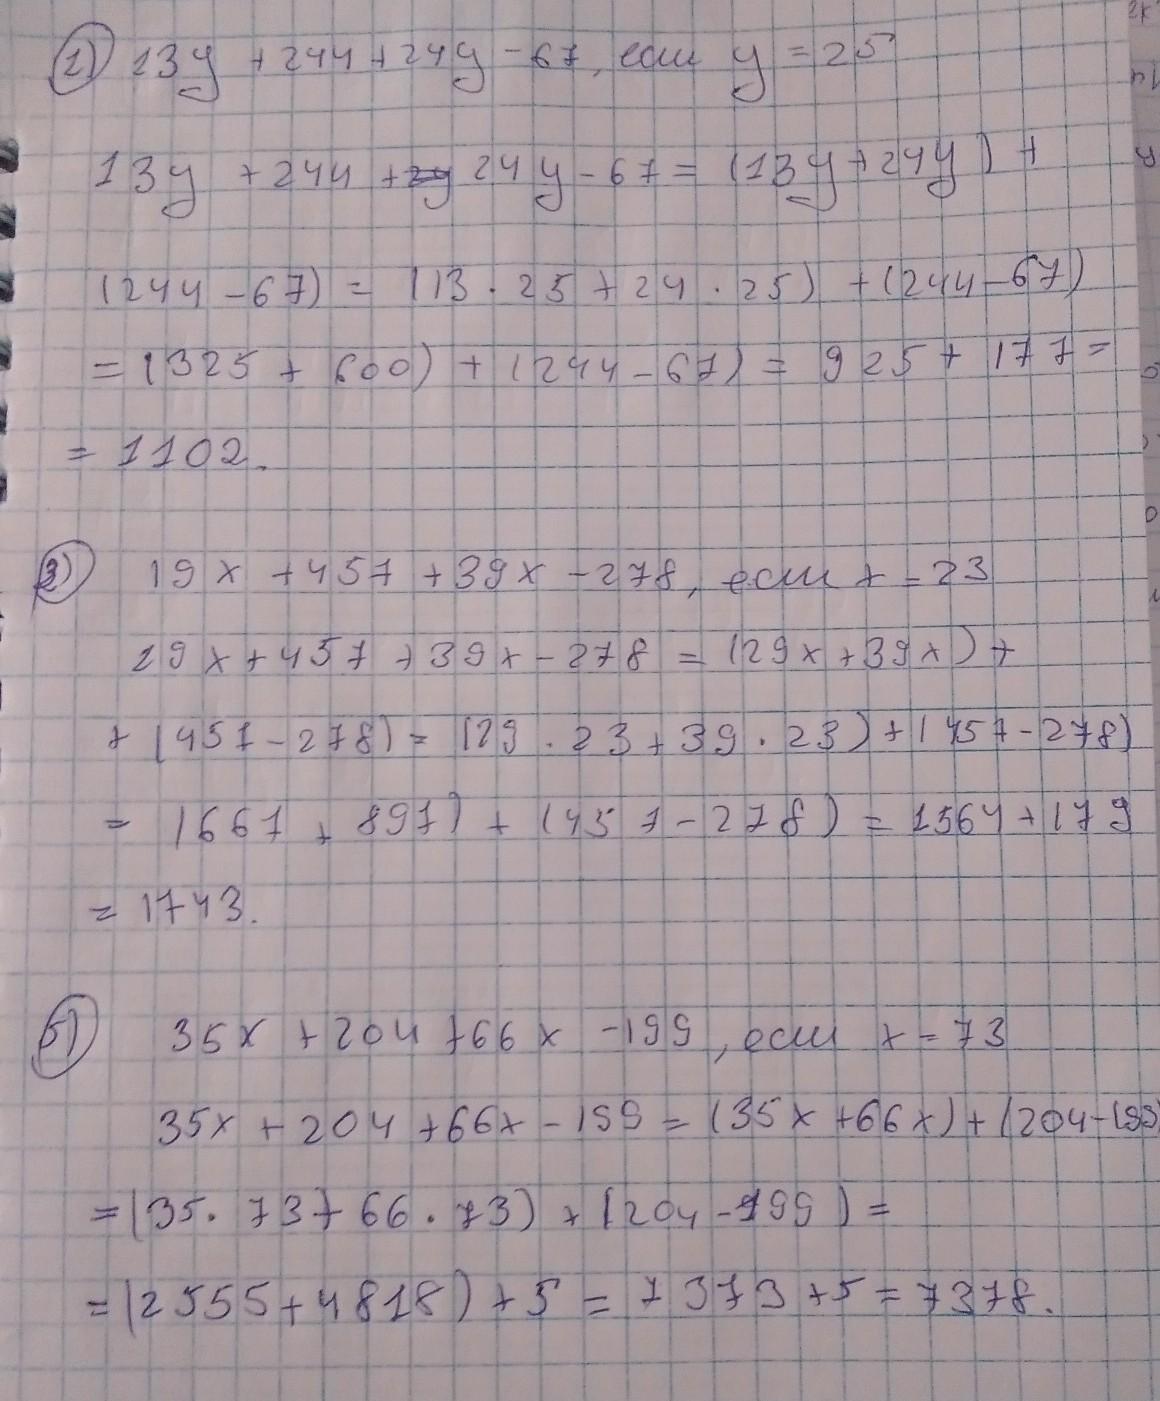 1) 13y + 244 + 24y - 67, если y = 25
13y + 244 + 24y - 67 = (13y + 24y) +
(244 - 67) = (13 · 25 + 24 · 25) + (244 - 67)
= (325 + 600) + (244 - 67) = 925 + 177 =
= 1102.
3) 19x + 457 + 39x - 278, если x = 23
29x + 457 + 39x - 278 = (29x + 39x) +
+ (457 - 278) = (29 · 23 + 39 · 23) + (457 - 278)
= (667 + 897) + (457 - 278) = 1564 + 179
= 1743.
5) 35x + 204 + 66x - 199, если x = 73
35x + 204 + 66x - 199 = (35x + 66x) + (204 - 199)
= (35 · 73 + 66 · 73) + (204 - 199) =
= (2555 + 4818) + 5 = 7373 + 5 = 7378.